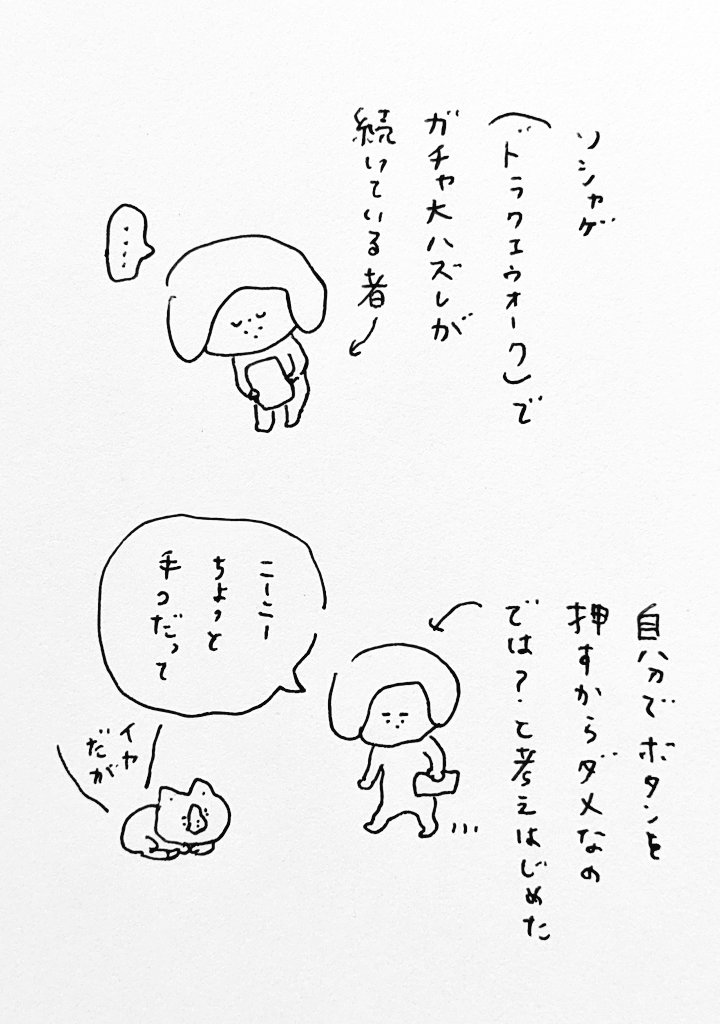 ソシャゲ
(ドラクエウォーク)で
ガチャ大ハズレが
続いている者
・・・・
自分でボタンを
押すからダメなの
では?と考えはじめた
ニーニー
ちょっと
手つだって
イヤ
だが